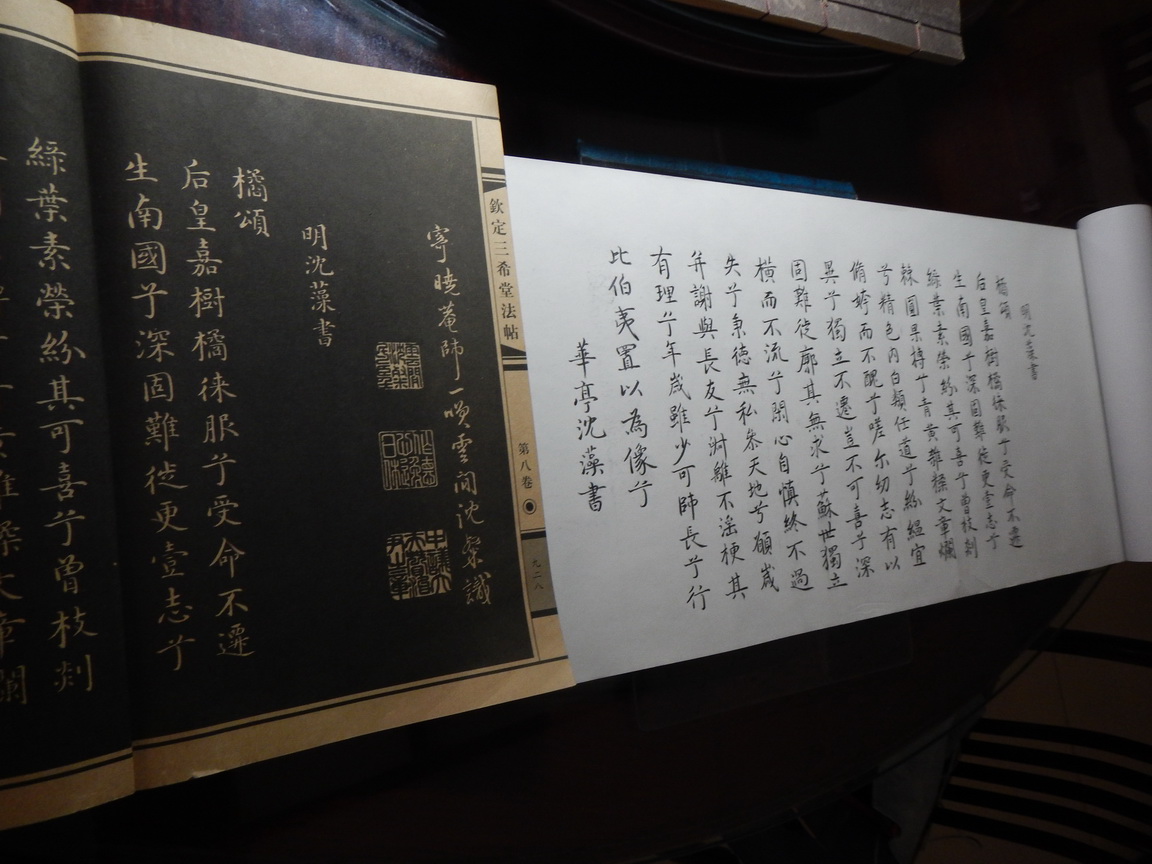 欽定三希堂法帖
第八卷
九二八
寧曉菴師一噱雲間沈粲識
明沈藻書
橘頌
后皇嘉樹橘徠服兮受命不遷
生南國兮深固難徙更壹志兮
綠葉素榮紛其可喜兮曾枝剡
黃雜糅文章爛
明沈藻書
橘頌
后皇嘉樹橘徠服兮受命不遷
生南國兮深固難徙更壹志兮
綠葉素榮紛其可喜兮曾枝剡
棘圓果摶兮青黃雜糅文章爛
兮精色內白類任道兮紛縕宜
脩姱而不醜兮嗟尔幼志有以
異兮獨立不遷豈不可喜兮深
固難徙廓其無求兮蘇世獨立
橫而不流兮閉心自慎終不過
失兮秉德無私參天地兮願歲
并謝與長友兮淑離不淫梗其
有理兮年歲雖少可師長兮行
比伯夷置以為像兮
華亭沈藻書